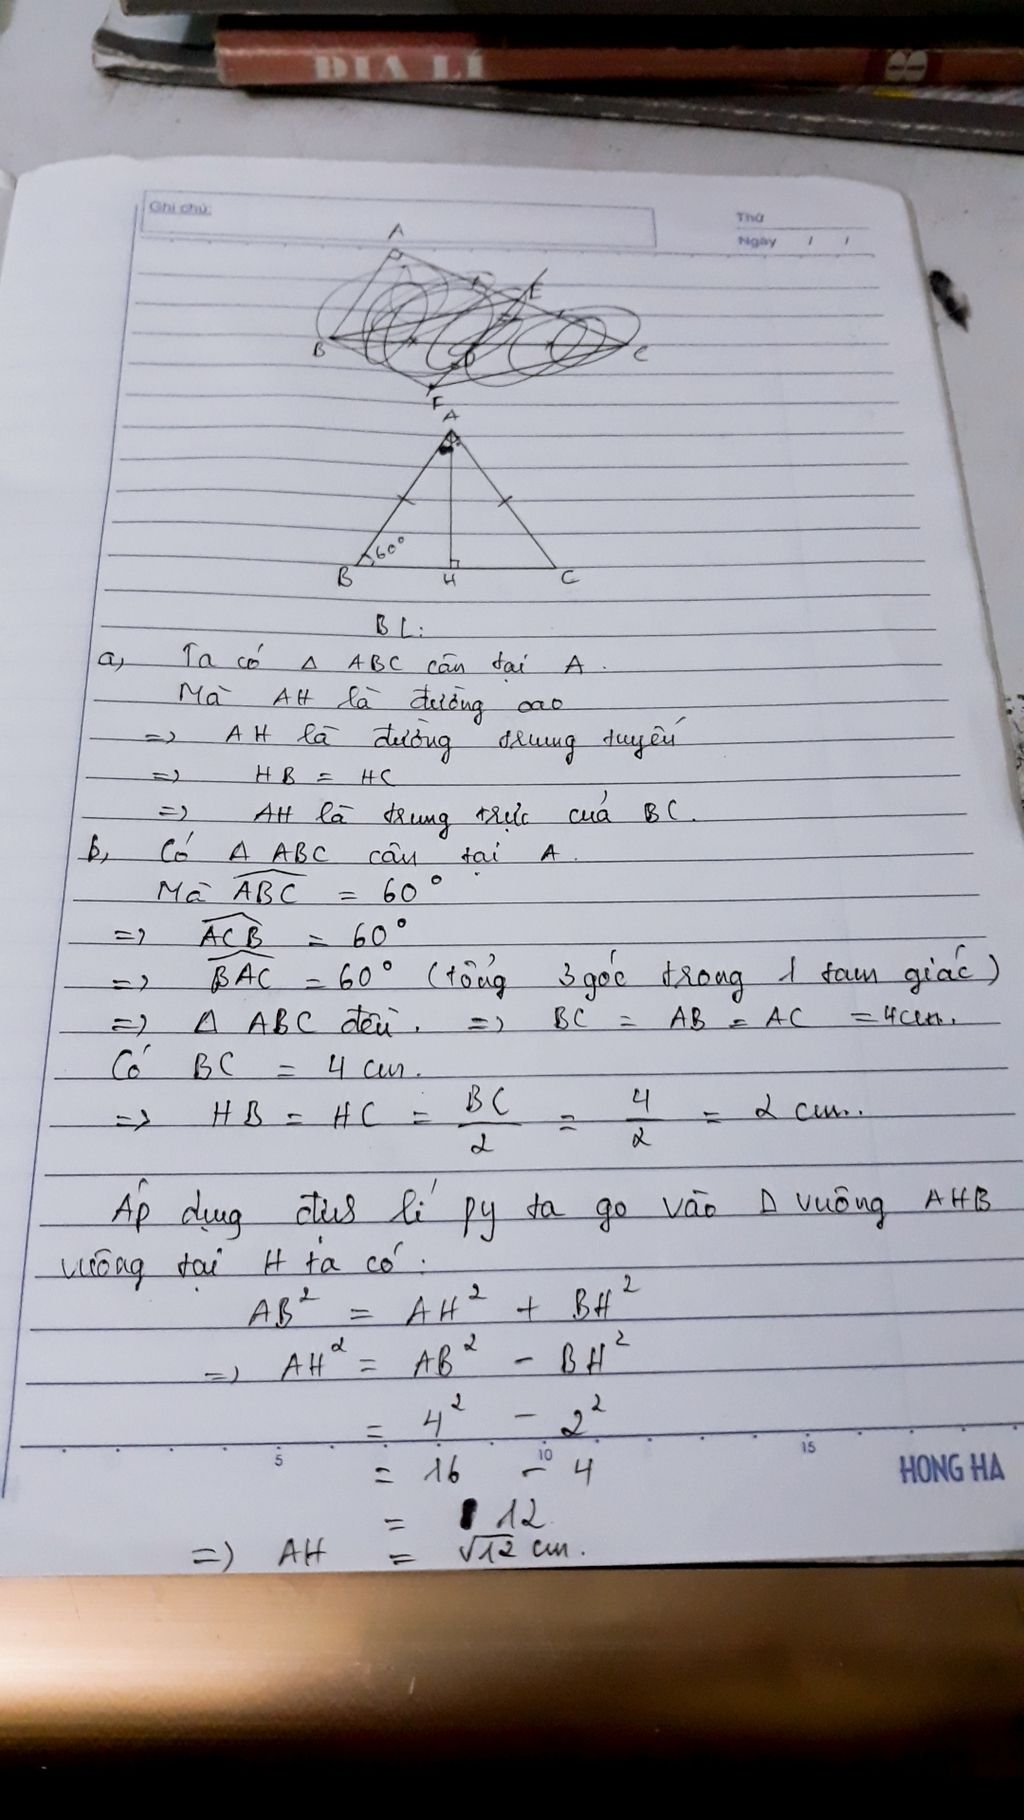 ĐỊA LÍ 8
Ghi chú:
Thứ
Ngày / /
A
E
B
D
C
F
A
60°
B
H
C
BL:
a, Ta có Δ ABC cân tại A.
Mà AH là đường cao
=> AH là đường trung tuyến
=> HB = HC
=> AH là trung trực của BC.
b, Có Δ ABC cân tại A.
Mà ABC = 60°
=> ACB = 60°
=> BAC = 60° (tổng 3 góc trong 1 tam giác)
=> Δ ABC đều. => BC = AB = AC = 4cm.
Có BC = 4 cm.
=> HB = HC = BC/2 = 4/2 = 2 cm.
Áp dụng định lí py ta go vào Δ vuông AHB
vuông tại H ta có:
AB² = AH² + BH²
=> AH² = AB² - BH²
= 4² - 2²
5 10 15
HONG HA
= 16 - 4
= 12
=> AH = √12 cm.